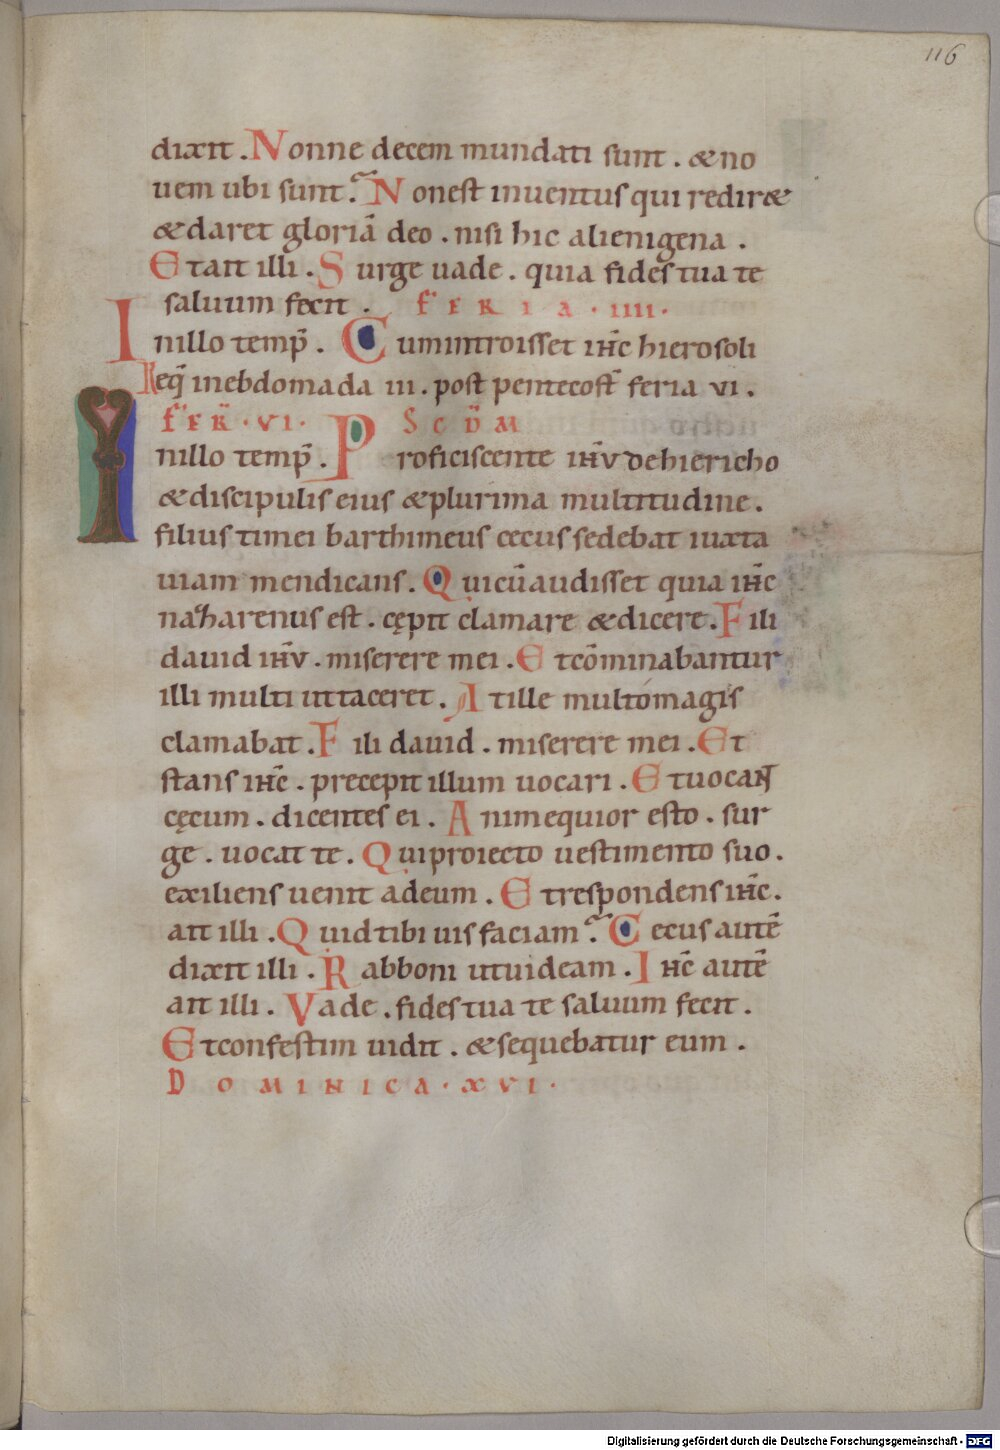 116
dixit . Nonne decem mundati sunt . & no
uem ubi sunt? Non est inuentus qui redir&
& daret gloriā deo . nisi hic alienigena .
Et ait illi . Surge uade . quia fides tua te
saluum fecit . FERIA · IIII ·
In illo temp̄ . Cum introisset ih̄c hierosoli
Req̄ in ebdomada iii . post pentecost̄ feria vi .
FER̄ · VI · P SCD̄M
In illo temp̄ . Proficiscente ih̄v de hiericho
& discipulis eius & plurima multitudine .
filius timei barthimeus cecus sedebat iuxta
uiam mendicans . Qui cū audisset quia ih̄c
nazarenus est . cępit clamare & dicere . Fili
dauid ih̄v . miserere mei . Et cōminabantur
illi multi ut taceret . At ille multo magis
clamabat . Fili dauid . miserere mei . Et
stans ih̄c . precepit illum uocari . Et uocant
cęcum . dicentes ei . Animequior esto . sur
ge . uocat te . Qui proiecto uestimento suo .
exiliens uenit ad eum . Et respondens ih̄c .
ait illi . Quid tibi uis faciam? Cecus autē
dixit illi . Rabboni ut uideam . Ih̄c autē
ait illi . Vade . fides tua te saluum fecit .
Et confestim uidit . & sequebatur eum .
DOMINICA · XVI ·
Digitalisierung gefördert durch die Deutsche Forschungsgemeinschaft - DFG